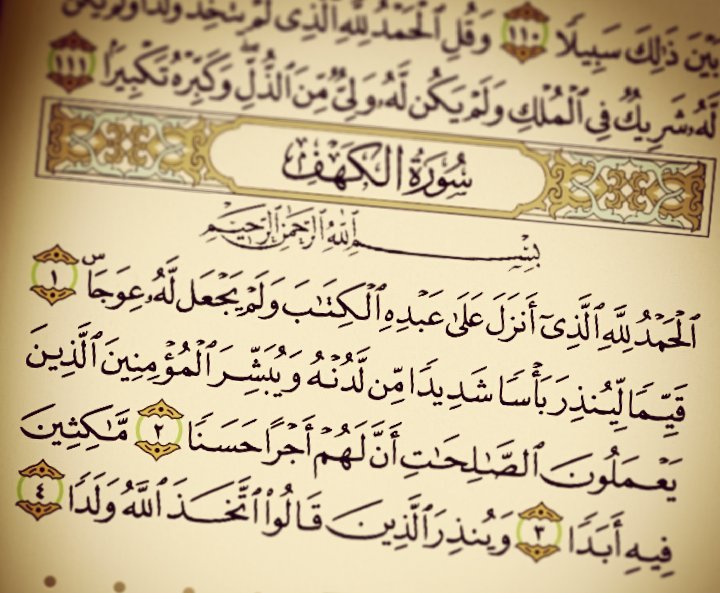 بَيْنَ ذَٰلِكَ سَبِيلًا ١١٠ وَقُلِ ٱلْحَمْدُ لِلَّهِ ٱلَّذِى لَمْ يَتَّخِذْ وَلَدًا وَلَمْ يَكُن
لَّهُۥ شَرِيكٌ فِى ٱلْمُلْكِ وَلَمْ يَكُن لَّهُۥ وَلِىٌّ مِّنَ ٱلذُّلِّ ۖ وَكَبِّرْهُ تَكْبِيرًۢا ١١١
سُورَةُ الكَهْفِ
بِسْمِ ٱللَّهِ ٱلرَّحْمَٰنِ ٱلرَّحِيمِ
ٱلْحَمْدُ لِلَّهِ ٱلَّذِىٓ أَنزَلَ عَلَىٰ عَبْدِهِ ٱلْكِتَٰبَ وَلَمْ يَجْعَل لَّهُۥ عِوَجَاۜ ١
قَيِّمًا لِّيُنذِرَ بَأْسًا شَدِيدًا مِّن لَّدُنْهُ وَيُبَشِّرَ ٱلْمُؤْمِنِينَ ٱلَّذِينَ
يَعْمَلُونَ ٱلصَّٰلِحَٰتِ أَنَّ لَهُمْ أَجْرًا حَسَنًا ٢ مَّٰكِثِينَ
فِيهِ أَبَدًا ٣ وَيُنذِرَ ٱلَّذِينَ قَالُوا۟ ٱتَّخَذَ ٱللَّهُ وَلَدًا ٤